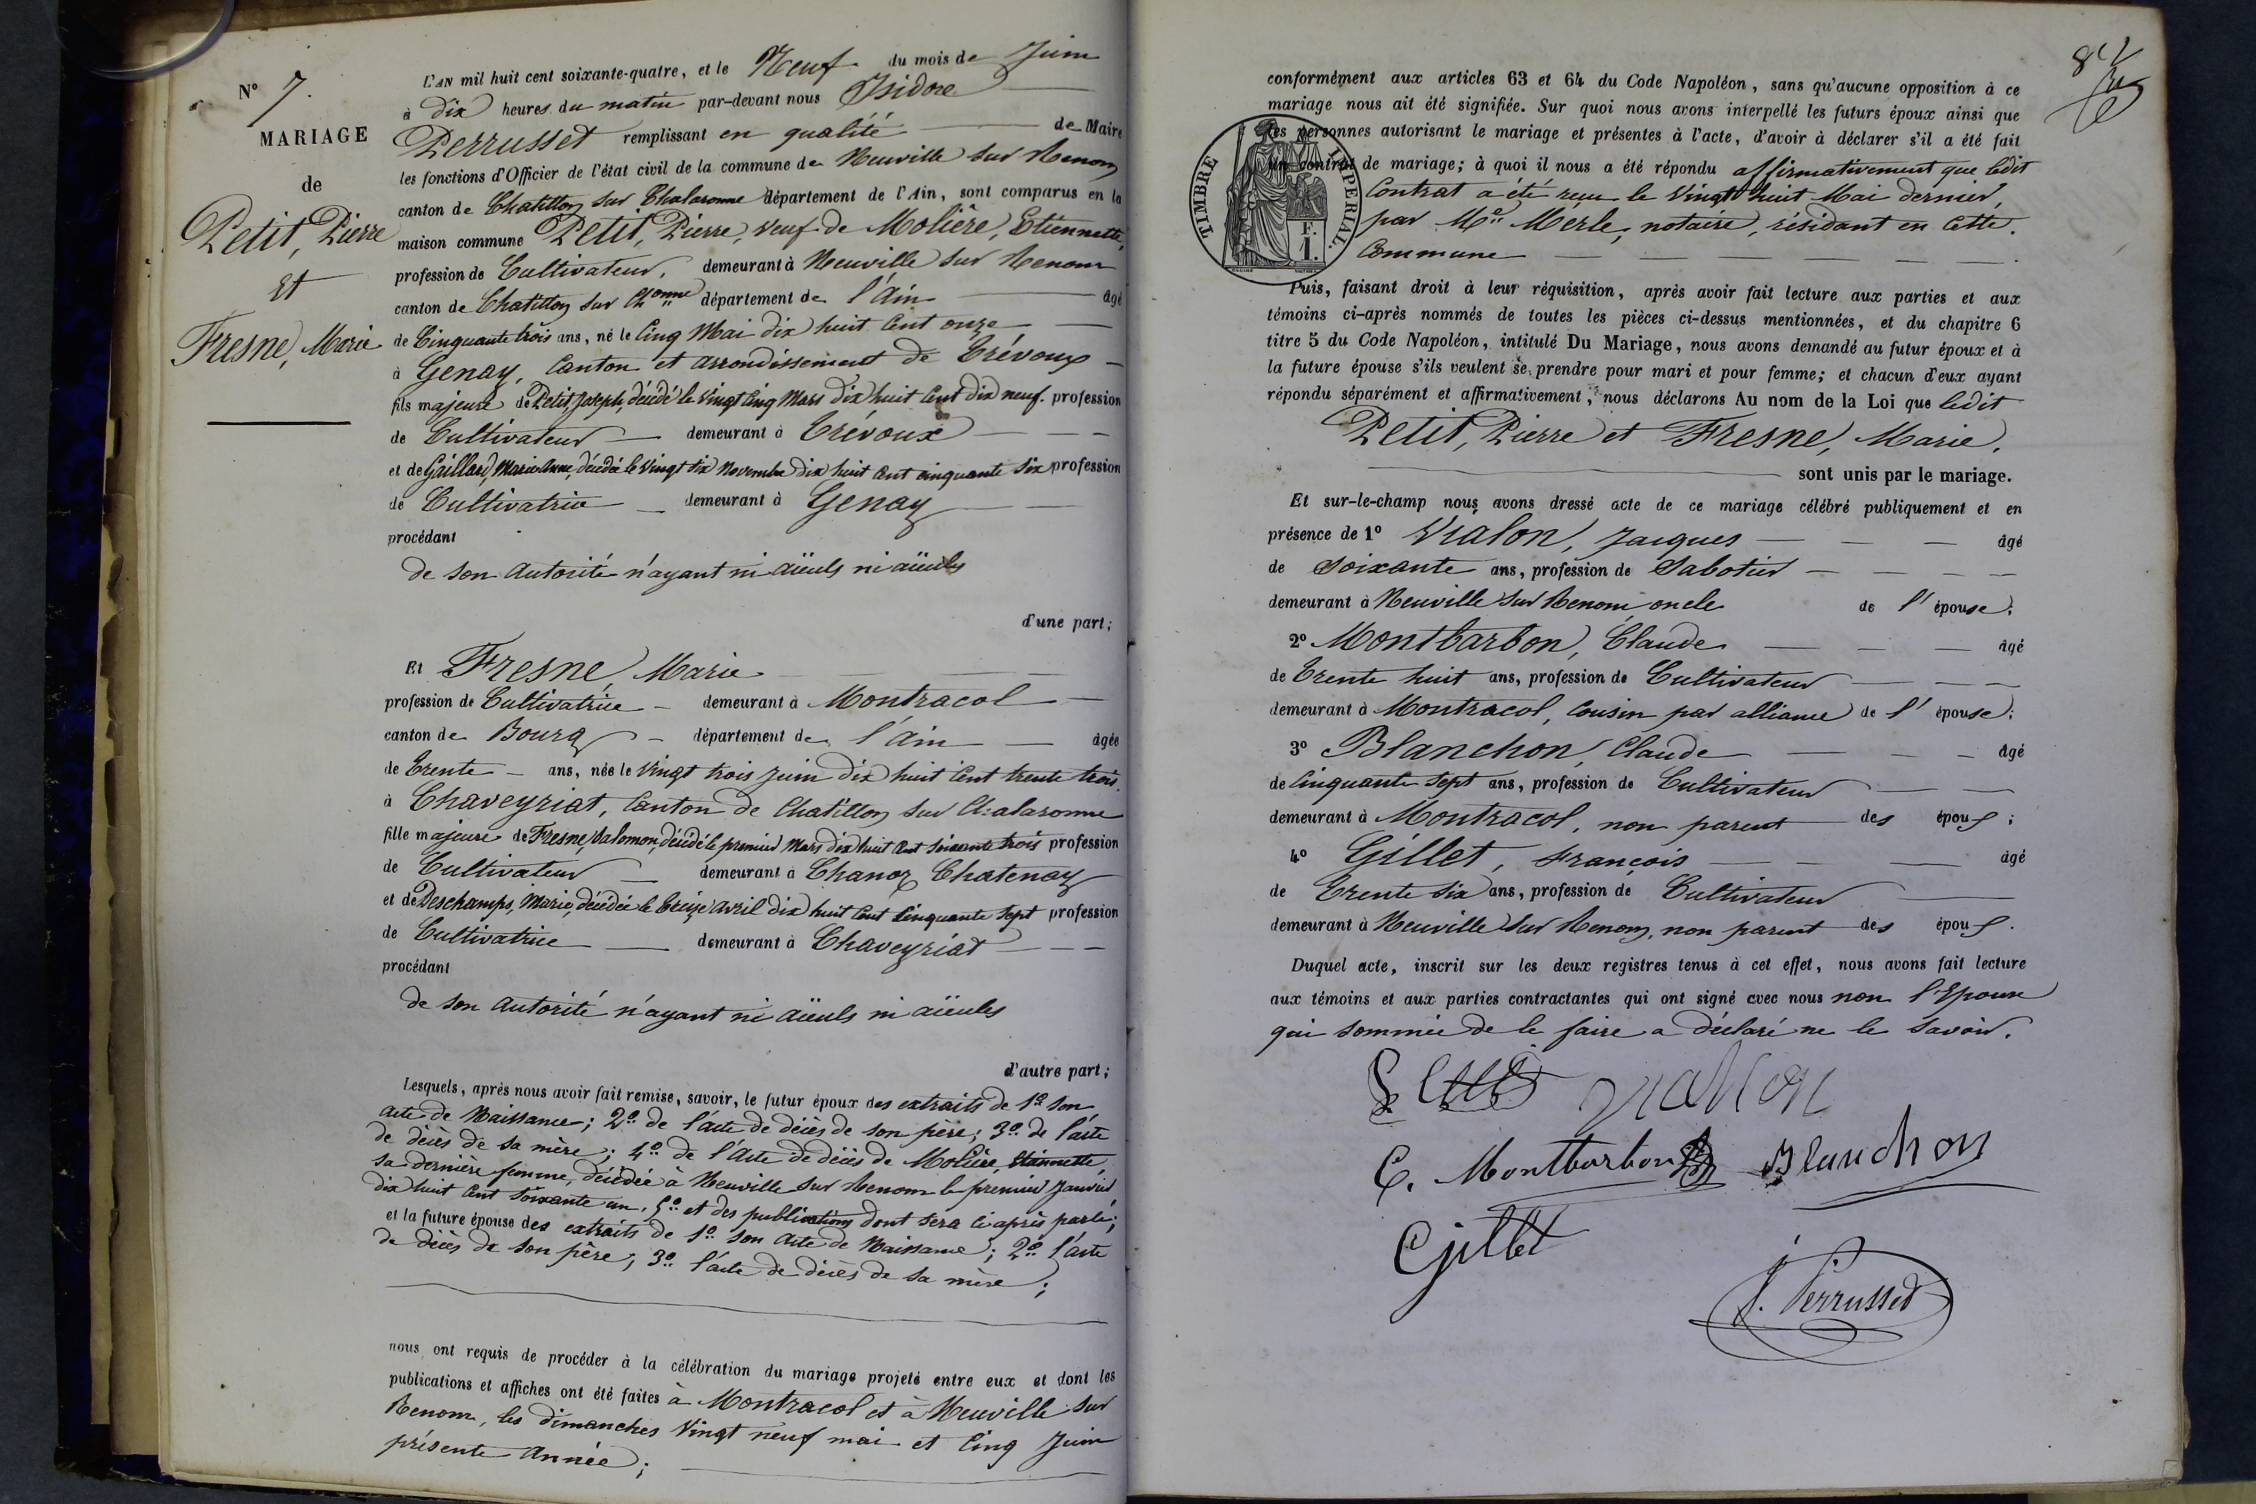 N° 7.
MARIAGE
de
Petit, Pierre
et
Fresne, Marie
L'AN mil huit cent soixante-quatre, et le Neuf du mois de Juin
à dix heures du matin par-devant nous Isidore
Perrusset remplissant en qualité de Maire
les fonctions d'Officier de l'état civil de la commune de Neuville sur Renom
canton de Chatillon sur Chalaronne département de l'Ain, sont comparus en la
maison commune Petit, Pierre, veuf de Molière, Etiennette,
profession de Cultivateur, demeurant à Neuville sur Renom
canton de Chatillon sur Chonne département de l'Ain âgé
de Cinquante trois ans, né le Cinq Mai dix huit Cent onze
à Genay, Canton et arrondissement de Trévoux
fils majeur de Petit, Joseph, décédé le vingt Cinq Mars dix huit Cent dix neuf. profession
de Cultivateur demeurant à Trévoux
et de Gaillard, Marie Anne, décédée le vingt six novembre dix huit Cent cinquante six profession
de Cultivatrice demeurant à Genay
procédant
de son autorité n'ayant ni aïeuls ni aïeules
d'une part;
Et Fresne, Marie
profession de Cultivatrice demeurant à Montracol
canton de Bourg département de l'Ain âgée
de Trente ans, née le vingt trois Juin dix huit Cent trente trois.
à Chaveyriat, Canton de Chatillon sur Chalaronne
fille majeure de Fresne, Salomon, décédé le premier Mars dix huit Cent soixante trois profession
de Cultivateur demeurant à Chanoz Chatenay
et de Deschamps, Marie, décédée le treize avril dix huit Cent Cinquante sept profession
de Cultivatrice demeurant à Chaveyriat
procédant
de son autorité n'ayant ni aïeuls ni aïeules
d'autre part;
Lesquels, après nous avoir fait remise, savoir, le futur époux des extraits de 1° son
acte de Naissance; 2° de l'acte de décès de son père; 3° de l'acte
de décès de sa mère; 4° de l'acte de décès de Molière, Etiennette,
sa dernière femme, décédée à Neuville sur Renom le premier Janvier
dix huit Cent soixante un. 5° et des publications dont sera ci après parlé;
et la future épouse des extraits de 1° son acte de Naissance; 2° l'acte
de décès de son père; 3° l'acte de décès de sa mère;
nous ont requis de procéder à la célébration du mariage projeté entre eux et dont les
publications et affiches ont été faites à Montracol et à Neuville sur
Renom, les dimanches vingt neuf mai et Cinq Juin
présente Année;
84
conformément aux articles 63 et 64 du Code Napoléon, sans qu'aucune opposition à ce
mariage nous ait été signifiée. Sur quoi nous avons interpellé les futurs époux ainsi que
les personnes autorisant le mariage et présentes à l'acte, d'avoir à déclarer s'il a été fait
un contrat de mariage; à quoi il nous a été répondu affirmativement que ledit
Contrat a été reçu le vingt huit Mai dernier,
par Me Merle, notaire, résidant en cette
Commune
TIMBRE IMPERIAL.
F.
1.
Puis, faisant droit à leur réquisition, après avoir fait lecture aux parties et aux
témoins ci-après nommés de toutes les pièces ci-dessus mentionnées, et du chapitre 6
titre 5 du Code Napoléon, intitulé Du Mariage, nous avons demandé au futur époux et à
la future épouse s'ils veulent se prendre pour mari et pour femme; et chacun d'eux ayant
répondu séparément et affirmativement, nous déclarons Au nom de la Loi que ledit
Petit, Pierre et Fresne, Marie.
sont unis par le mariage.
Et sur-le-champ nous avons dressé acte de ce mariage célébré publiquement et en
présence de 1° Vialon, Jacques âgé
de Soixante ans, profession de Sabotier
demeurant à Neuville sur Renom oncle de l'épouse;
2° Montbarbon, Claude âgé
de Trente huit ans, profession de Cultivateur
demeurant à Montracol, Cousin par alliance de l'épouse;
3° Blanchon, Claude âgé
de Cinquante sept ans, profession de Cultivateur
demeurant à Montracol, non parent des époux;
4° Gillet, François âgé
de Trente six ans, profession de Cultivateur
demeurant à Neuville sur Renom, non parent des époux.
Duquel acte, inscrit sur les deux registres tenus à cet effet, nous avons fait lecture
aux témoins et aux parties contractantes qui ont signé avec nous non l'Epouse
qui sommée de le faire a déclaré ne le savoir.
Petit Viallon
C. Montbarbon Blanchon
Gillet
J. Perrusset